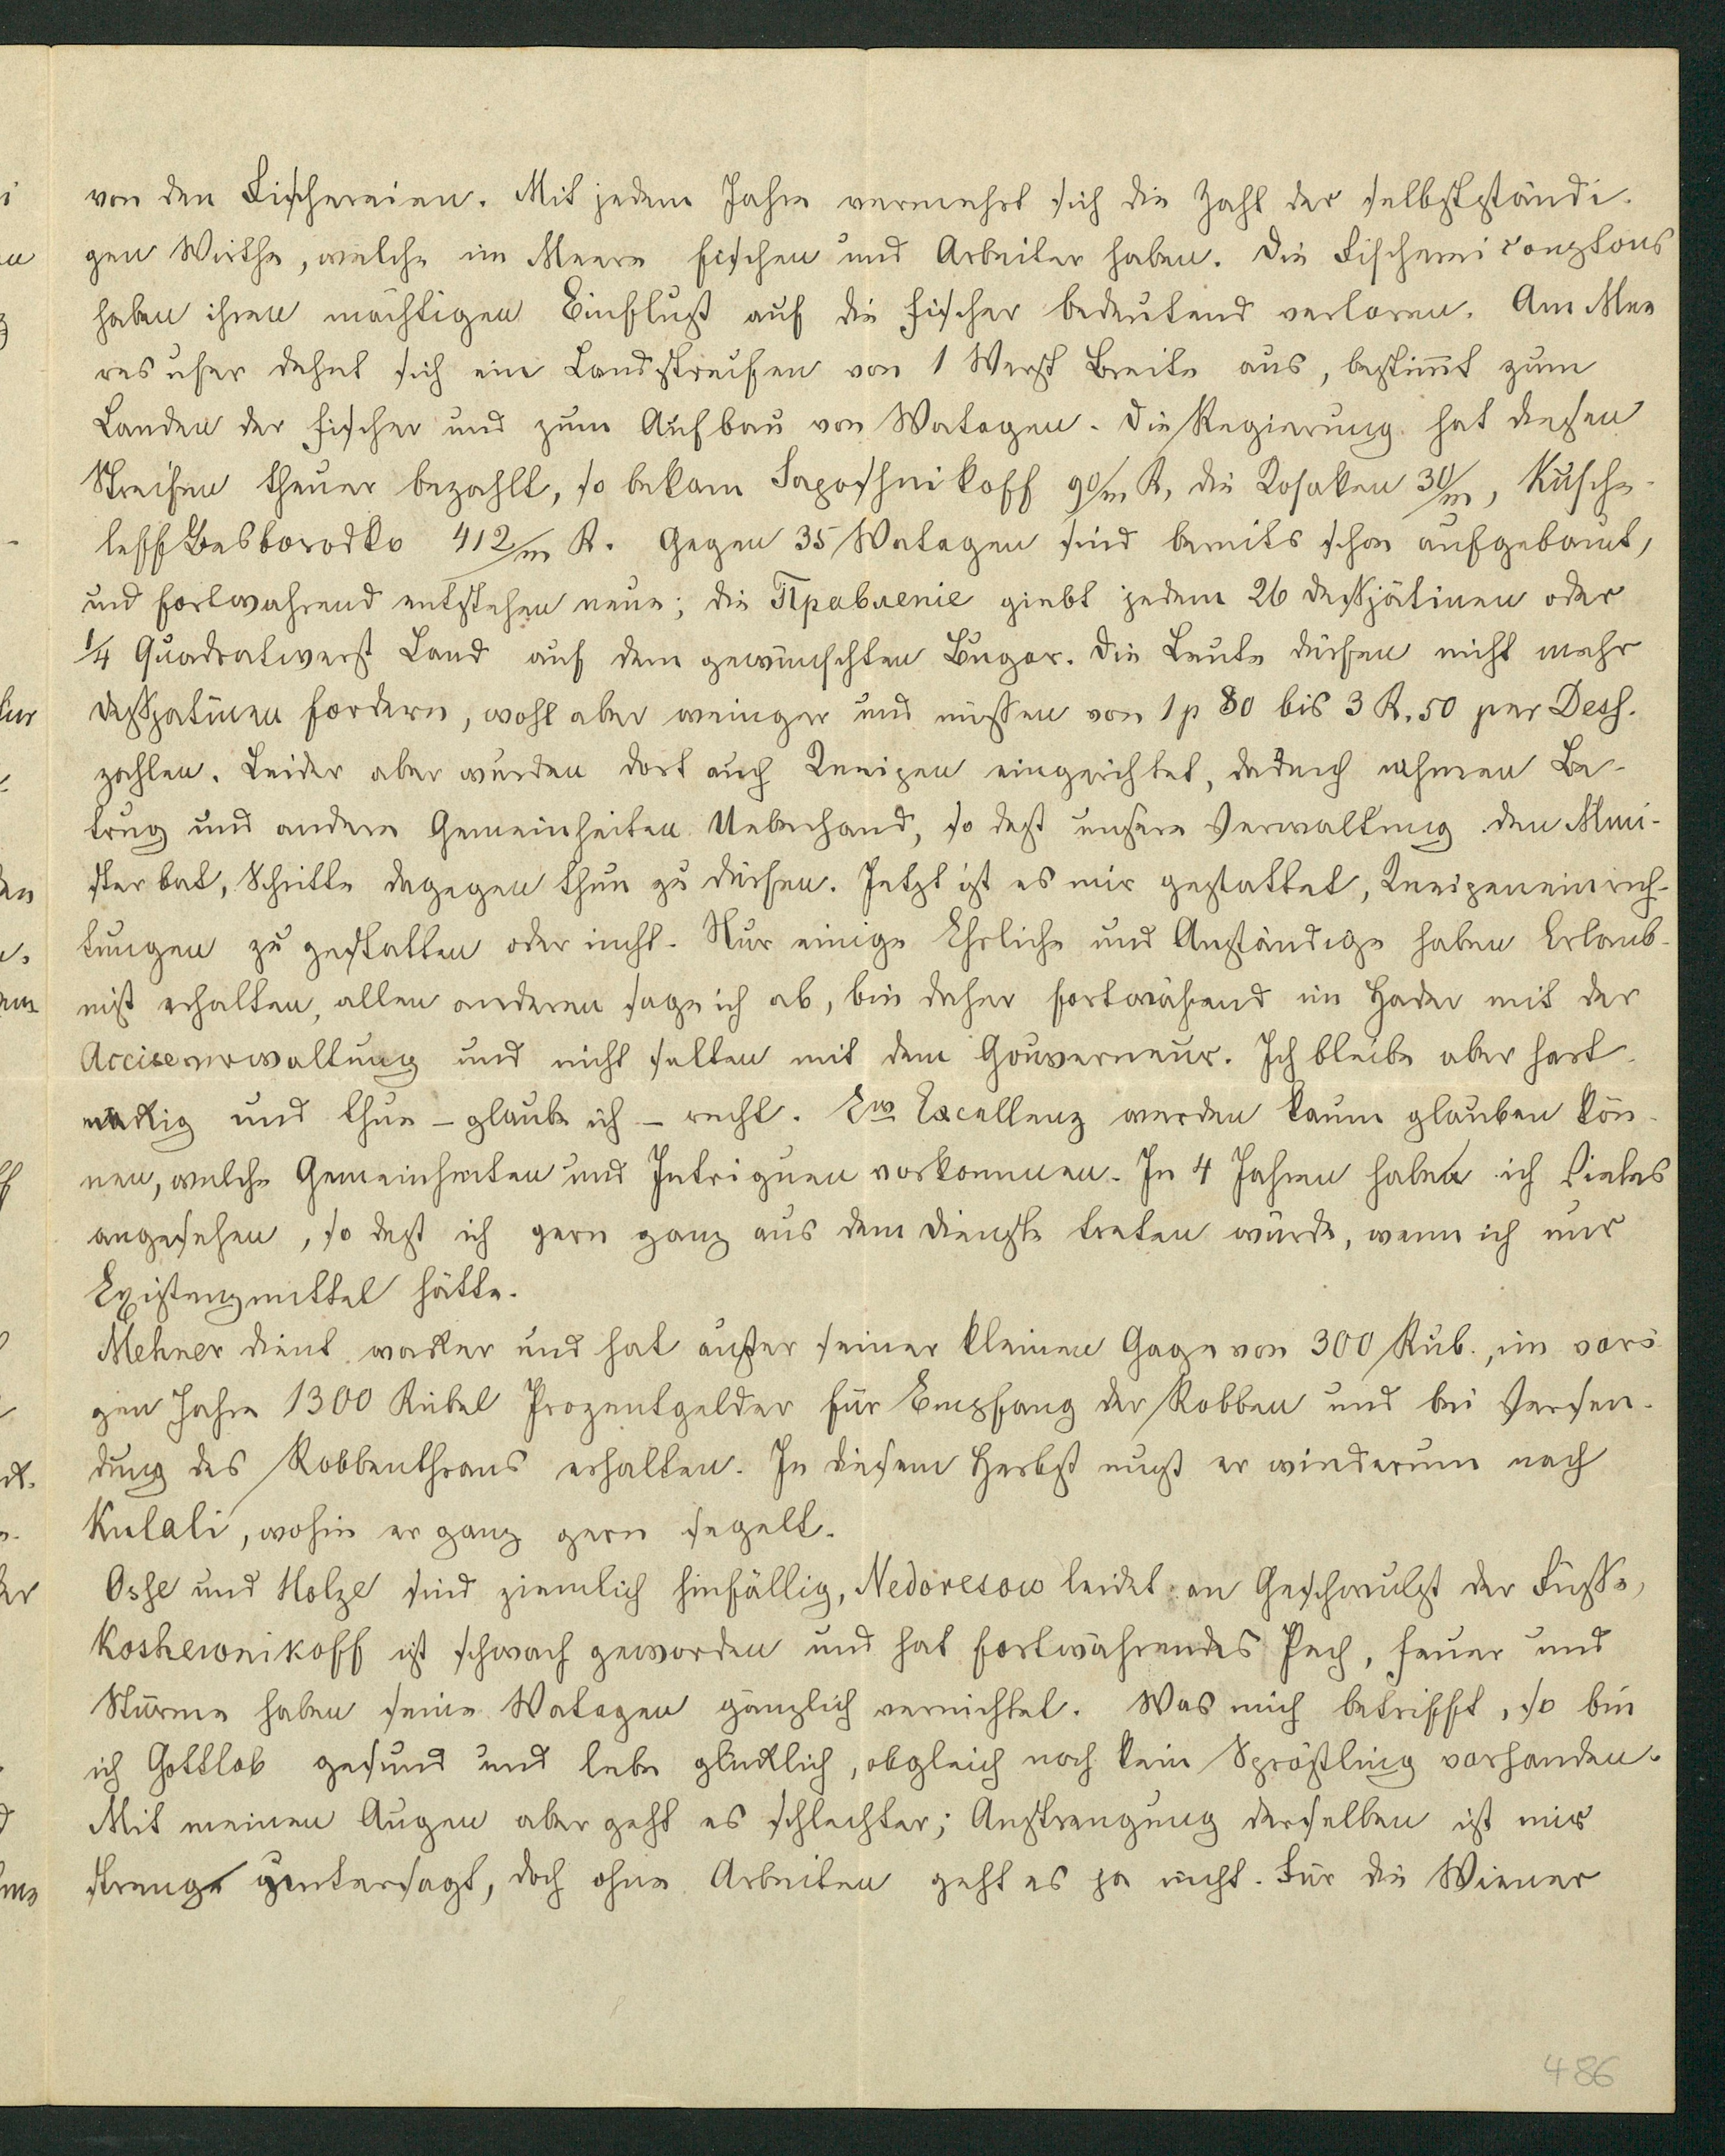 von den Fischereien. Mit jedem Jahre vermehrt sich die Zahl der selbstständi-
gen Wirthe, welche im Meere fischen und Arbeiter haben. Die Fischerei Comptous
haben ihren mächtigen Einfluß auf die Fischer bedeutend verloren. Am Mee
resufer dehnt sich ein Landstreifen von 1 Werst Breite aus, bestim̄t zum
Landen der Fischer und zum Aufbau von Watagen. Die Regierung hat diesen
Streifen theuer bezahlt, so bekam Saposhnikoff 90/m R, die Kosaken 30/m, Kusche-
leff Besborodko 412/m R. Gegen 35 Watagen sind bereits schon aufgebaut,
und fortwahrend entstehen neue; die Правленіе giebt jedem 26 Deßjätinen oder
1/4 Quadratwerst Land auf dem gewünschten Bugor. Die Leute dürfen nicht mehr
Deßjatinen fordern, wohl aber weinger und müßen von 1 p 80 bis 3 R. 50 per Desj.
zahlen. Leider aber wurden dort auch Kneipen eingerichtet, dadurch nahmen Be-
trug und andere Gemeinheiten Ueberhand, so daß unsere Verwaltung den Mini-
ster bat, Schritte dagegen thun zu dürfen. Jetzt ist es mir gestattet, Kneipeneinrich-
tungen zu gestatten oder nicht. Nur einige Ehrliche und Anständige haben Erlaub-
niß erhalten, allen anderen sage ich ab, bin daher fortwährend im Hader mit der
Acciseverwaltung und nicht selten mit dem Gouverneur. Ich bleibe aber hart-
näckig und thue – glaube ich – recht. Ew Excellenz werden kaum glauben kön-
nen, welche Gemeinheiten und Intriguen vorkommen. In 4 Jahren habe ich Vieles
angesehen, so daß ich gern ganz aus dem Dienste treten würde, wenn ich nur
Existenzmittel hätte.
Mehner dient wacker und hat außer seiner kleinen Gage von 300 Rub., im vori
gen Jahre 1300 Rubel Prozentgelder für Empfang der Robben und bei Versen-
dung des Robbenthrans erhalten. In diesem Herbst muß er wiederum nach
Kulali, wohin er ganz gern segelt.
Osse und Holze sind ziemlich hinfällig, Nedoresow leidet an Geschwulst der Füße,
Koshewnikoff ist schwach geworden und hat fortwährendes Pech, Feuer und
Stürme haben seine Watagen gänzlich vernichtet. Was mich betrifft, so bin
ich Gottlob gesund und lebe glücklich, obgleich noch kein Sprößling vorhanden.
Mit meinen Augen aber geht es schlechter; Anstrengung derselben ist mir
strenge untersagt, doch ohne Arbeiten geht es ja nicht. Für die Wiener
486